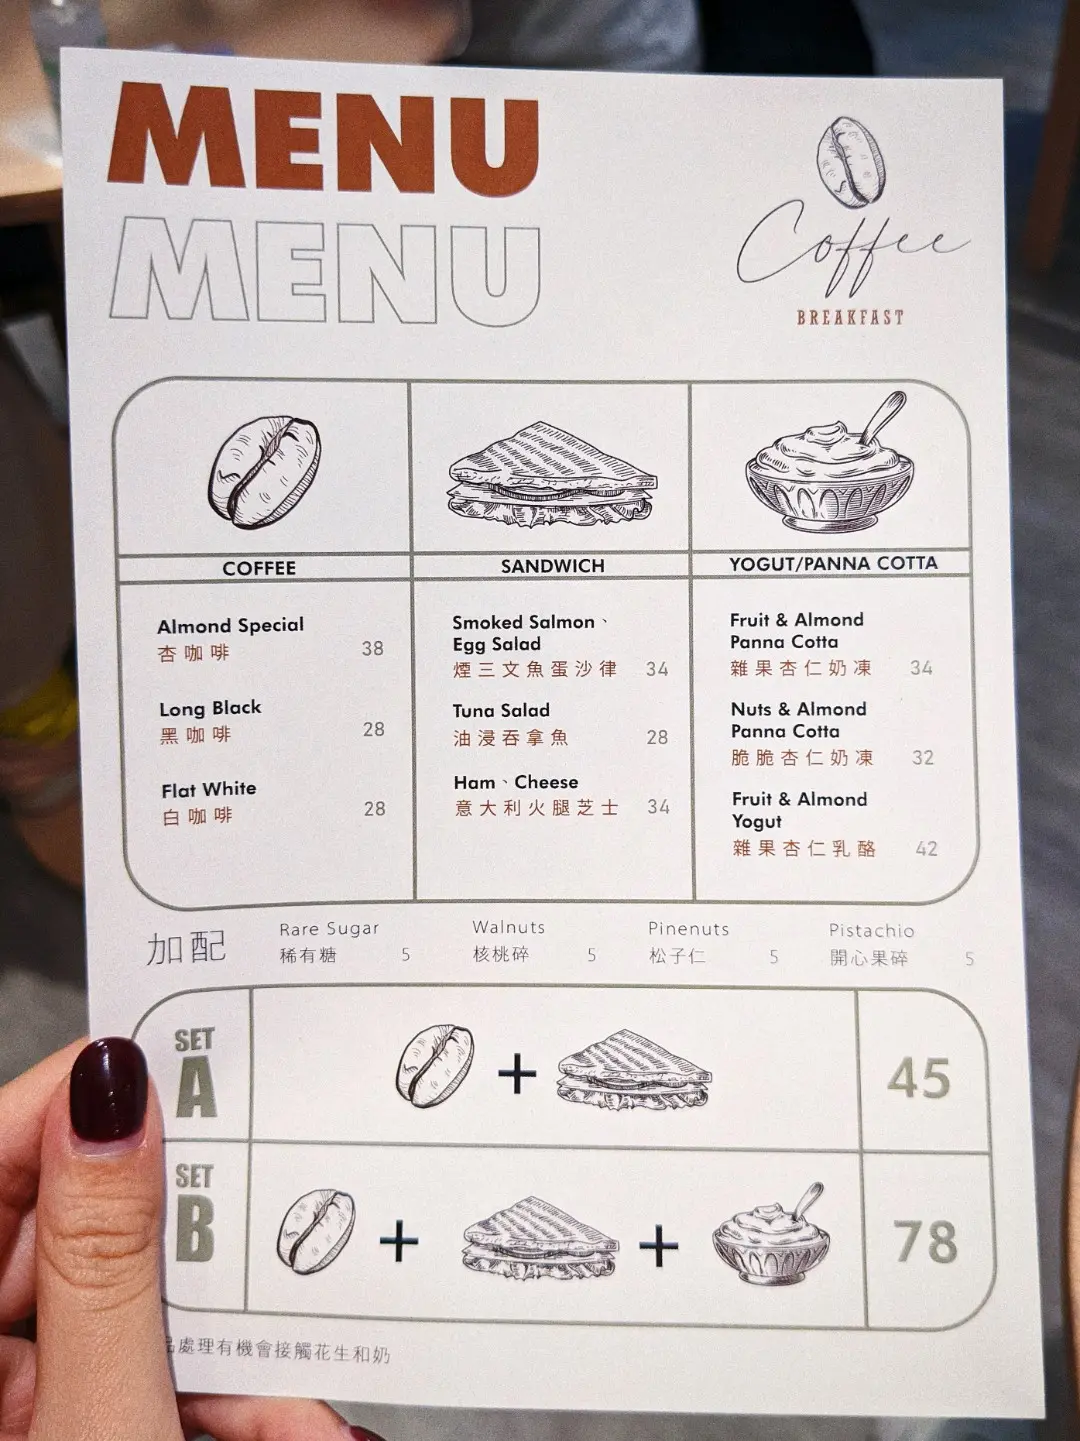 MENU
MENU
Coffee
BREAKFAST
COFFEE
Almond Special
杏咖啡 38
Long Black
黑咖啡 28
Flat White
白咖啡 28
SANDWICH
Smoked Salmon、
Egg Salad
煙三文魚蛋沙律 34
Tuna Salad
油浸吞拿魚 28
Ham、Cheese
意大利火腿芝士 34
YOGUT/PANNA COTTA
Fruit & Almond
Panna Cotta
雜果杏仁奶凍 34
Nuts & Almond
Panna Cotta
脆脆杏仁奶凍 32
Fruit & Almond
Yogut
雜果杏仁乳酪 42
加配
Rare Sugar
稀有糖 5
Walnuts
核桃碎 5
Pinenuts
松子仁 5
Pistachio
開心果碎 5
SET
A
+
45
SET
B
+ +
78
品處理有機會接觸花生和奶